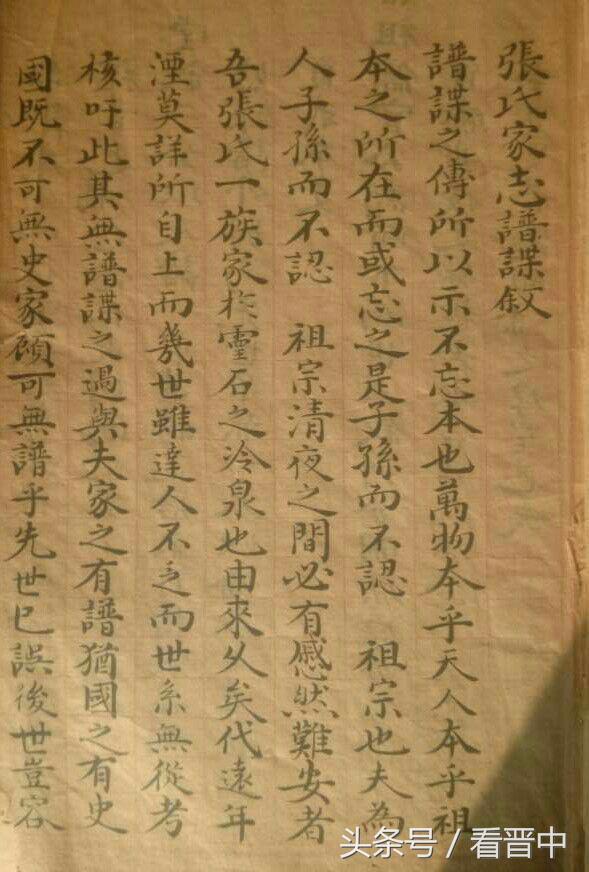 張氏家志譜諜敘
譜諜之傳所以示不忘本也萬物本乎天人本乎祖
本之所在而或忘之是子孫而不認　祖宗也夫為
人子孫而不認　祖宗清夜之間必有慼然難安者
吾張氏一族家於靈石之冷泉也由來久矣代遠年
湮莫詳所自上而幾世雖達人不乏而世系無從考
核吁此其無譜諜之過與夫家之有譜猶國之有史
國既不可無史家顧可無譜乎先世已誤後世豈容
头条号 / 看晋中